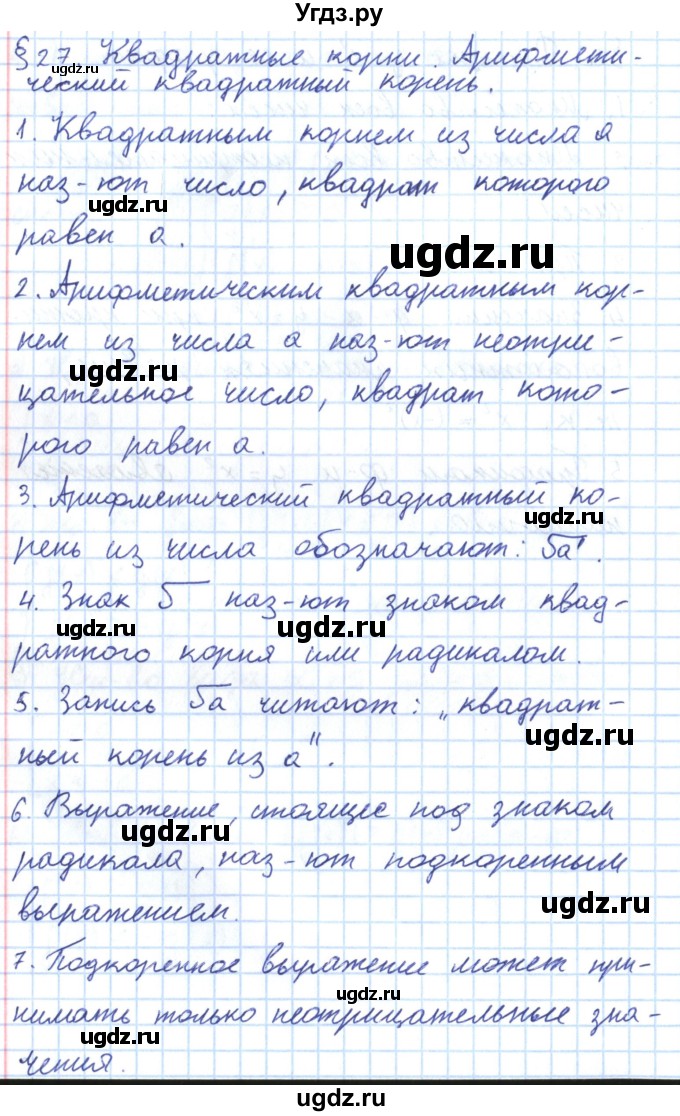 Угдз.ру
§27. Квадратные корни. Арифмети-
ugdz.ru
ческий квадратный корень.
1. Квадратным корнем из числа а
наз-ют число, квадрат которого
ugdz.ru
равен а.
ugdz.ru
2. Арифметическим квадратным кор-
нем из числа а наз-ют неотри-
ugdz.ru
цательное число, квадрат кото-
рого равен а.
3. Арифметический квадратный ко-
ugdz.ru
рень из числа обозначают: √а.
4. Знак √ наз-ют знаком квад-
ugdz.ru
ugdz.ru
ратного корня или радикалом.
5. Запись √а читают: „квадрат-
ugdz.ru
ный корень из а".
6. Выражение, стоящее под знаком
ugdz.ru
радикала, наз-ют подкоренным
ugdz.ru
выражением.
7. Подкоренное выражение может при-
ugdz.ru
нимать только неотрицательные зна-
ugdz.ru
чения.
ugdz.ru